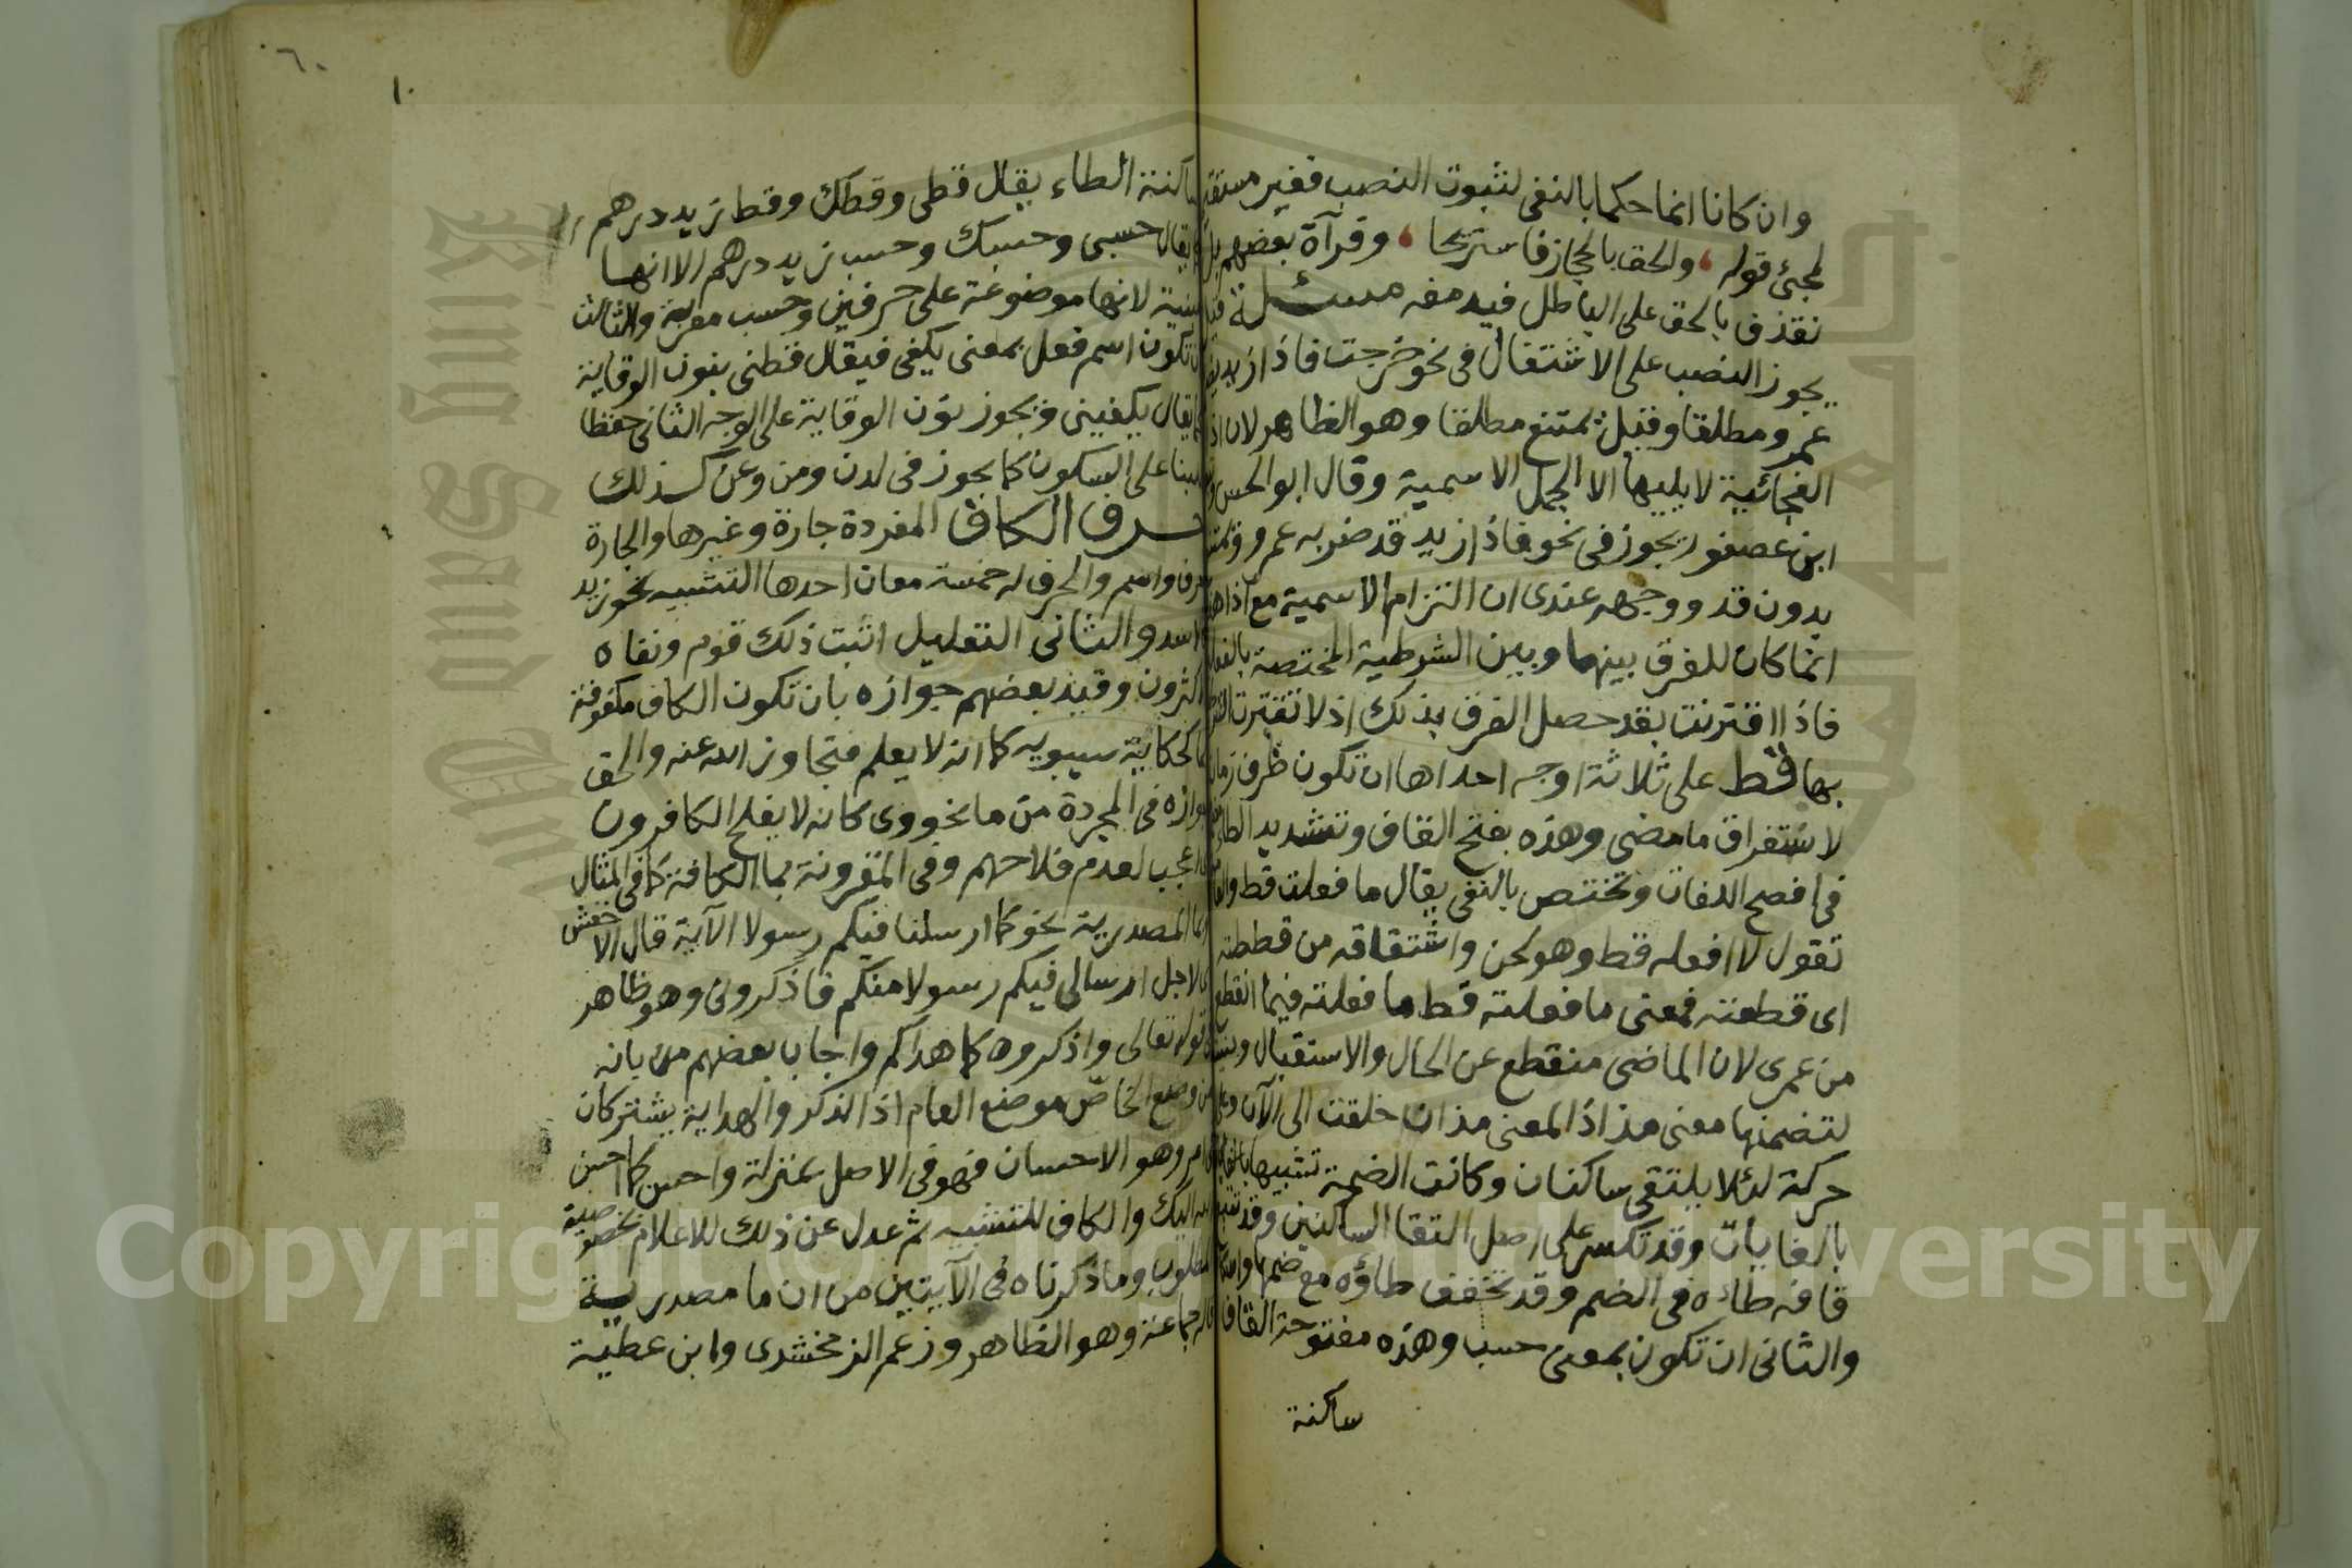 وان كانا انما حكما بالنفى لثبوت النصب فغير مستقد
لمجئ قوله والحق بالحجاز فاستريحا وقرآة بعضهم بل
نقذف بالحق على الباطل فيدمغه مسئلة
يجوز النصب على الاشتغال فى نحو خرجت فاذا زيد يضر
عمرو مطلقا وقيل يمتنع مطلقا وهو الظاهر لان اذا
الفجائية لا يليها الا الجمل الاسمية وقال ابو الحسن
ابن عصفور يجوز فى نحو فاذا زيد قد ضربه عمرو ويمتنع
بدون قد ووجهه عندى ان التزام الاسمية مع اذا هذ
انما كان للفرق بينهما وبين الشرطية المختصة بالفعل
فاذا اقترنت بقد حصل الفرق بذلك اذ لا تقترن الشر
بها قط على ثلاثة اوجه احداها ان تكون ظرف زمان
لاستغراق ما مضى وهذه بفتح القاف وتشديد الطا
فى افصح اللغات وتختص بالنفى يقال ما فعلت قط والعا
تقول لا افعله قط وهو لحن واشتقاقه من قططته
اى قطعته فمعنى ما فعلته قط ما فعلته فيما انقطع
من عمرى لان الماضى منقطع عن الحال والاستقبال وبنيت
لتضمنها معنى مذ اذ المعنى مذ ان خلقت الى الآن وعلى
حركة لئلا يلتقى ساكنان وكانت الضمة تشبيها بالغايا
بالغايات وقد تكسر على اصل التقا الساكنين وقد تتبع
قافه طاءه فى الضم وقد تخفف طاؤه مع ضمها
والثانى ان تكون بمعنى حسب وهذه مفتوحة القاف
ساكنة
٦٠
١٠
ساكنة الطاء يقال قطى وقطك وقط زيد درهم
يقال حسبى وحسبك وحسب زيد درهم الا انها
مبنية لانها موضوعة على حرفين وحسب معربة والثالث
ان تكون اسم فعل بمعنى يكفى فيقال قطنى بنون الوقاية
كما يقال يكفينى ويجوز نون الوقاية على الوجه الثانى حفظا
للبنا على السكون كما يجوز فى لدن ومن وعن كذلك
حرف الكاف المفردة جارة وغيرها والجارة
حرف واسم والحرف له خمسة معان احدها التشبيه نحو زيد
كالاسد والثانى التعليل اثبت ذلك قوم ونفاه
الاكثرون وقيد بعضهم جوازه بان تكون الكاف مكفوفة
بما كحكاية سيبويه كما انه لا يعلم فتجاوز الله عنه والحق
جوازه فى المجردة من ما نحو وى كانه لا يفلح الكافرون
اى اعجب لعدم فلاحهم وفى المقرونة بما الكافة كما فى المثال
وبما المصدرية نحو كما ارسلنا فيكم رسولا الآية قال الاخفش
اى لاجل ارسالى فيكم رسولا منكم فاذكرونى وهو ظاهر
فى قوله تعالى واذكروه كما هداكم واجاب بعضهم من بانه
من وضع الخاص موضع العام اذ الذكر والهداية يشتركان
فى امر وهو الاحسان فهو فى الاصل بمنزلة واحسن كما احسن
الله اليك والكاف للتشبيه ثم عدل عن ذلك للاعلام بخصوصية
المطلوب وما ذكرناه فى الآيتين من ان ما مصدرية
قاله جماعة وهو الظاهر وزعم الزمخشرى وابن عطية